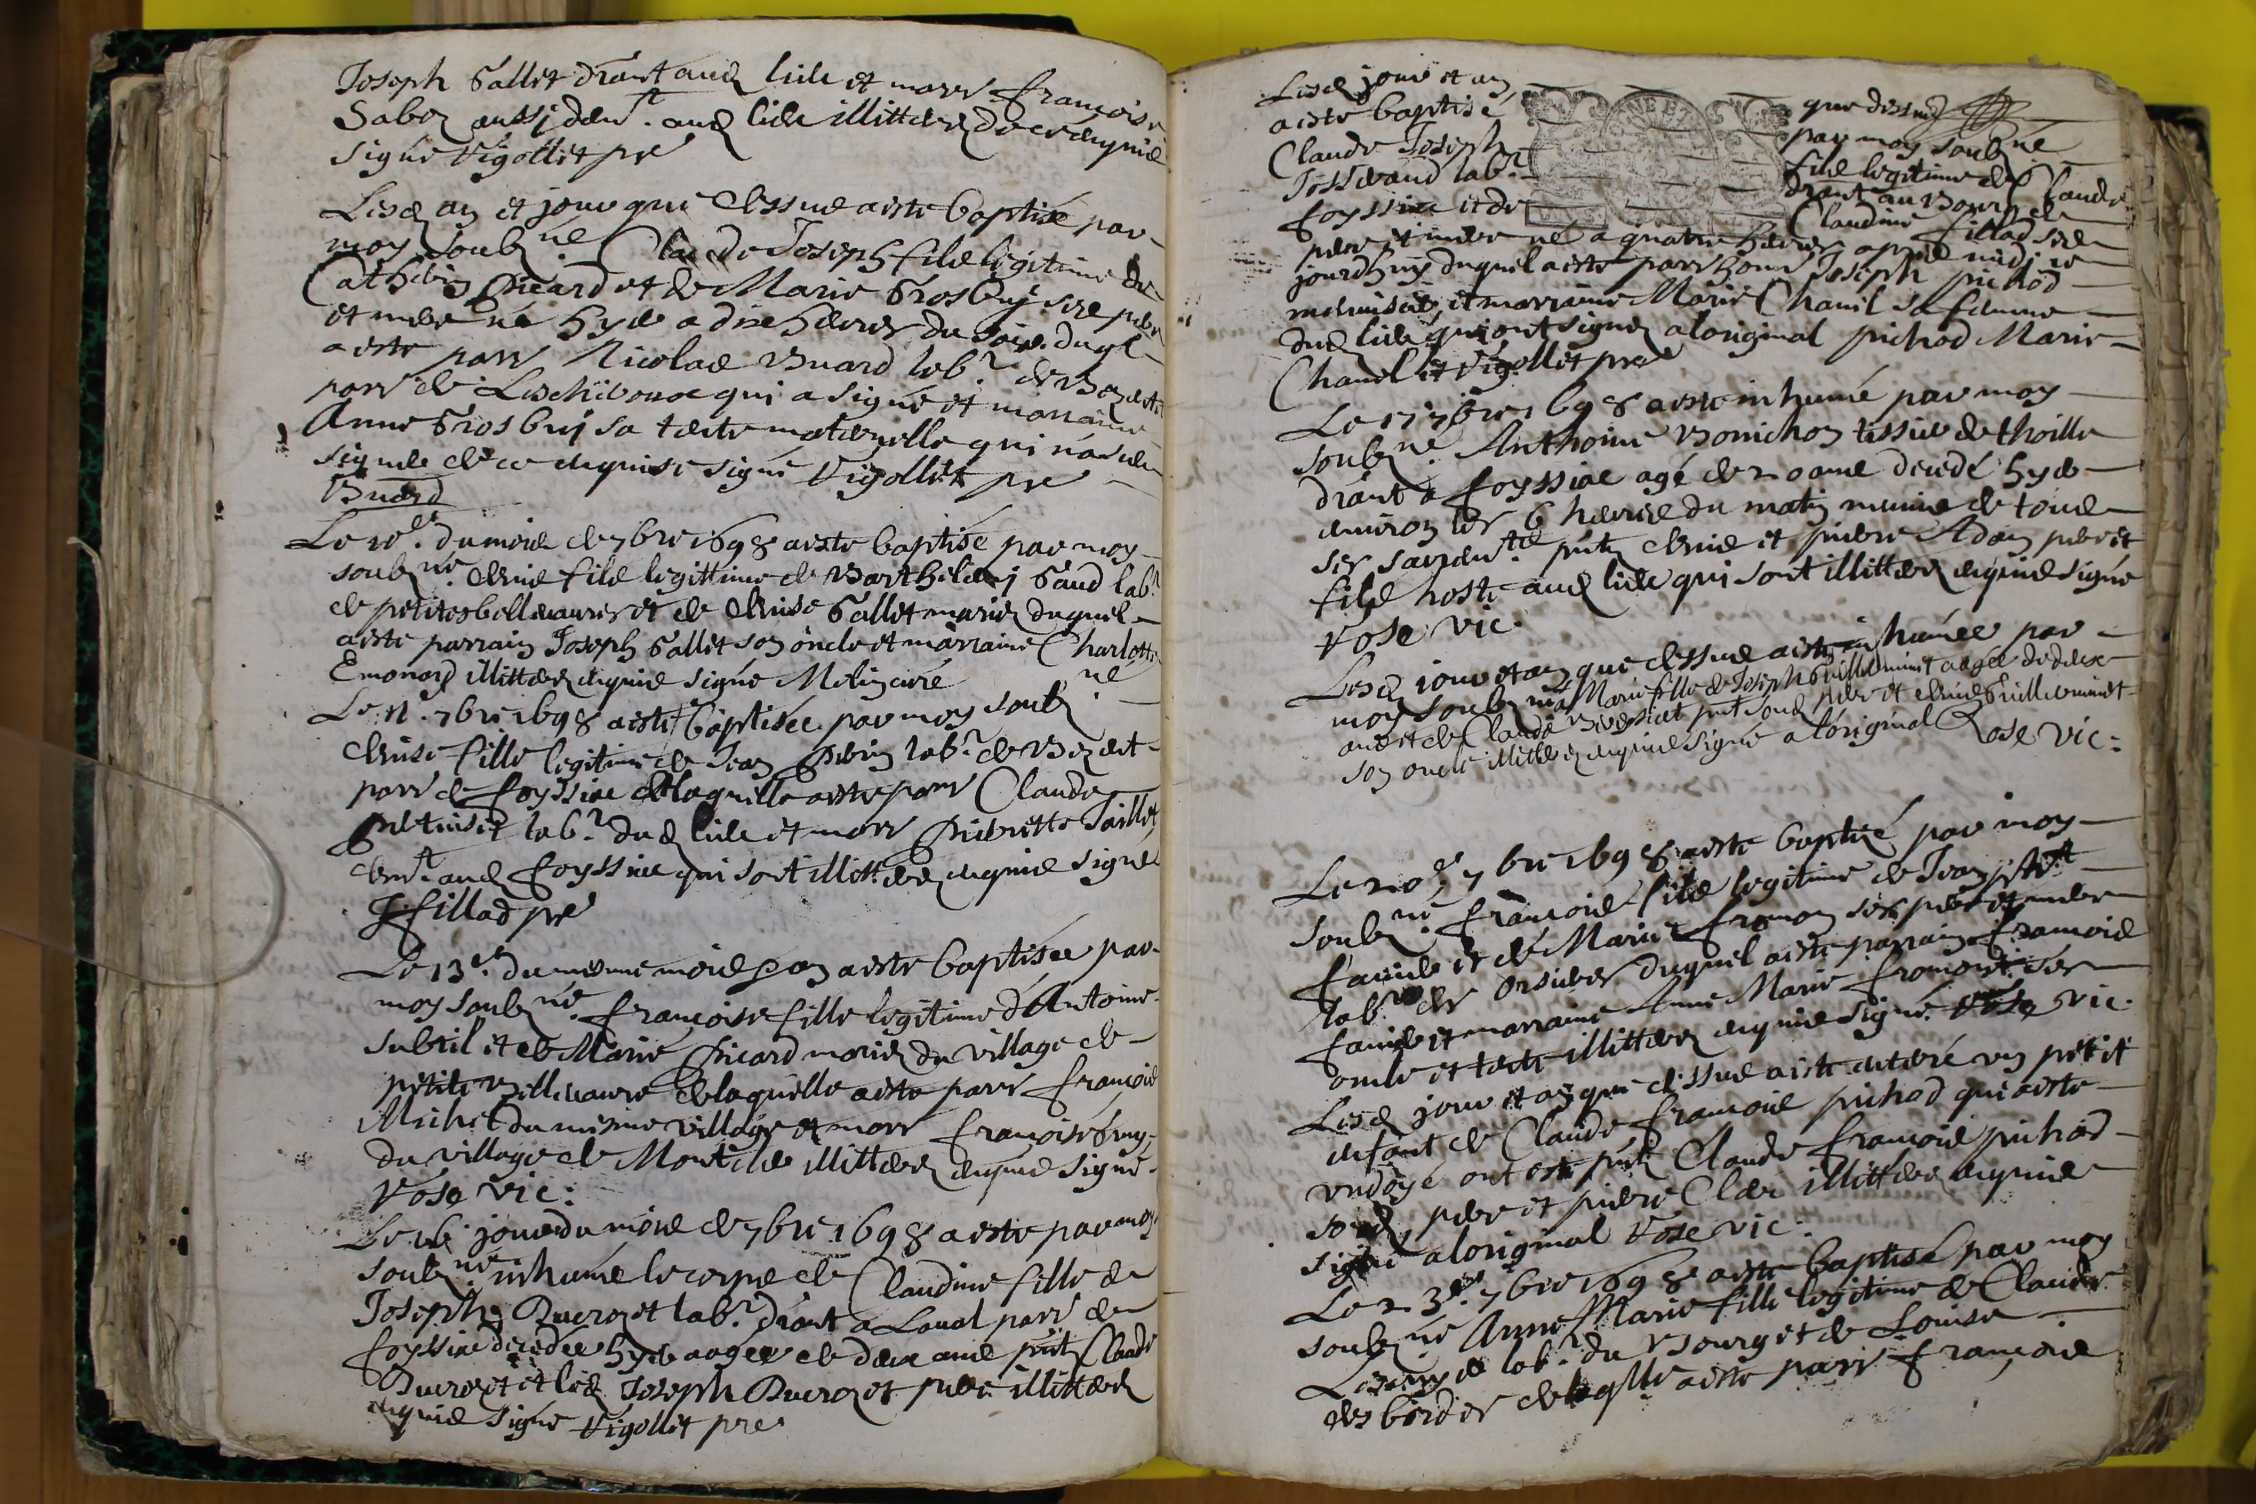 Joseph Gallet d'rant aud lieu et marr françoise
Saboz aussi dem.t aud lieu illitterez de ce enquis
signé Vigollet pre
Lesd an et jour que dessus a esté baptisé par
moy soubz.né Claude Joseph fils legitime de
Catherin Picard et de Marie Grosbuy ses pere
et mere né hyer a dix heures du soir duql
a esté parr Nicolas Buard lab.r de
parr de qui a signé et marraine
Anne Grosbuy sa tante maternelle qui n'a sceu
signer de ce enquise signé Vigollet pre
Buard
Le 10.e du mois de 7bre 1698 a esté baptisé par moy
soubz.né Denis fils legittime de Barthelemy Gaud lab.r
de petites bellevaures et de Denise Gallet mariez duquel
a esté parrain Joseph Gallet son oncle et marraine Charlotte
Emonard illitterez enquis signé Molin curé
Le 11. 7bre 1698 a esté baptisée par moy soubz né
Denise fille legitime de Jean Perrin lab.r de
parr de foyssiae de laquelle a esté parr Claude
lab.r dud lieu et marr Pierrette Taillet
dem.t aud foyssiae qui sont illitterez enquis signé
J fillad pre
Le 13.e du mesme mois et an a esté baptisée par
moy soubz.né françoise fille legitime d'Antoine
Subtil et de Marie Picard mariez du village de
petite bellevaure de laquelle a esté parr françois
Michet du mesme village et marr françoise
du village de illitterez enquis signé
Rose vic:
Le 16 jour du mois de 7bre 1698 a esté par moy
soubz.né inhumé le corps de Claudine fille de
Joseph Ducrozet lab.r d'rant a Laval parr de
foyssiae decedée hyer aagée de deux ans pnt Claude
Ducrozet et led Joseph Ducrozet pere illitterez
enquis signé Vigollet pre
Lesd jour et an que dessus
a esté baptisé par moy soubz né
Claude Joseph fils legitime de Claude
Josserand lab.r d'rant au Bourg de
foyssiae et de Claudine fillad ses
pere et mere né a quatre heures apres midj ce
jourdhuy duquel a esté parr hon Joseph pichod
menuisier et marraine Marie Chanel sa femme
dud lieu qui ont signez a loriginal pichod Marie
Chanel et Vigollet pre
Le 17 7bre 1698 a esté inhumé par moy
soubz.né Anthoine Bonichon tissier de thoille
d'rant a foyssiae agé de 20 ans decedé hyer
environ les 6 heures du matin munie de tous
ses sacrem.ts pntz Denis et pierre Adam pere et
fils hoste aud lieu qui sont illitterez enquis signé
Rose vic.
Lesd jour et an que dessus a esté inhumée par
moy soubz.né Marie fille de Joseph Guilleminet aagée de deux
ans et de Claude pnt soud pere et Denis Guilleminet
son oncle illitterez enquis signé a loriginal Rose vic:
Le 20.e 7bre 1698 a esté baptizé par moy
soubz.né françois fils legitime de Jean
favier et de Marie fromon ses pere et mere
lab.rs de duquel a esté parrain françois
favier et marraine Anne Marie fromont ses
oncle et tante illitterez enquis signé Rose vic.
Lesd jour et an que dessus a esté enterré un petit
enfant de Claude francois pichod qui a esté
undoyé ont esté pntz Claude françois pichod
soud pere et pierre Clerc illitterez enquis
signé a loriginal Rose vic.
Le 23.e 7bre 1698 a esté baptisé par moy
soubz né Anne Marie fille legitime de Claude
lab.r du Bourg et de Louise
desbordes de laqlle a esté parr françois